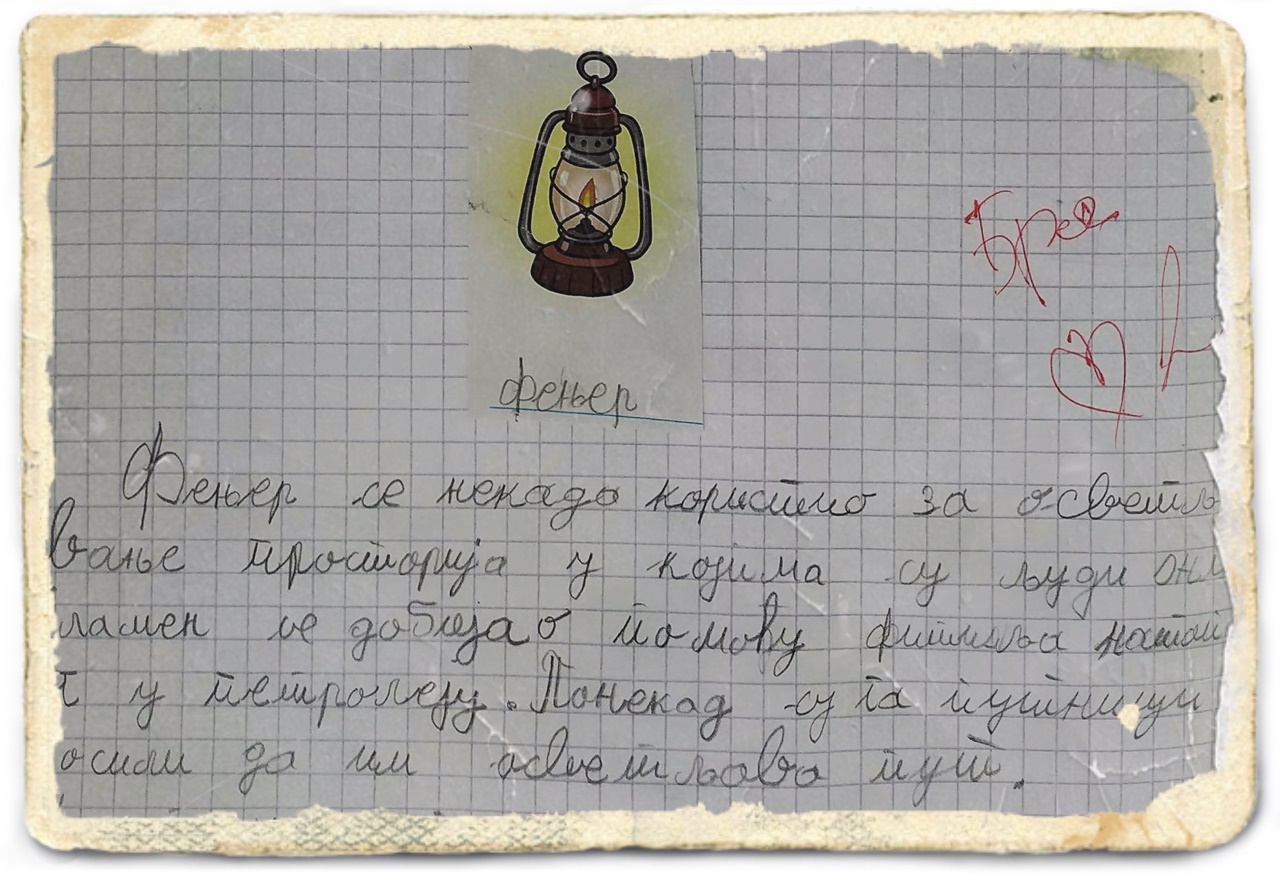 фењер
Фењер се некада користио за осветљ
вање просторија у којима су људи
ламен се добијао помоћу фитиља натоп
у петролеју. Понекад су га путници
осили да им осветљава пут.